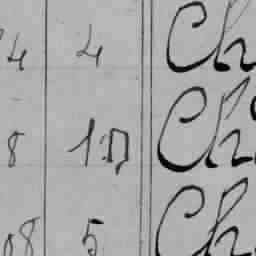 4 4 Ch
8 Ch
08 5 Ch